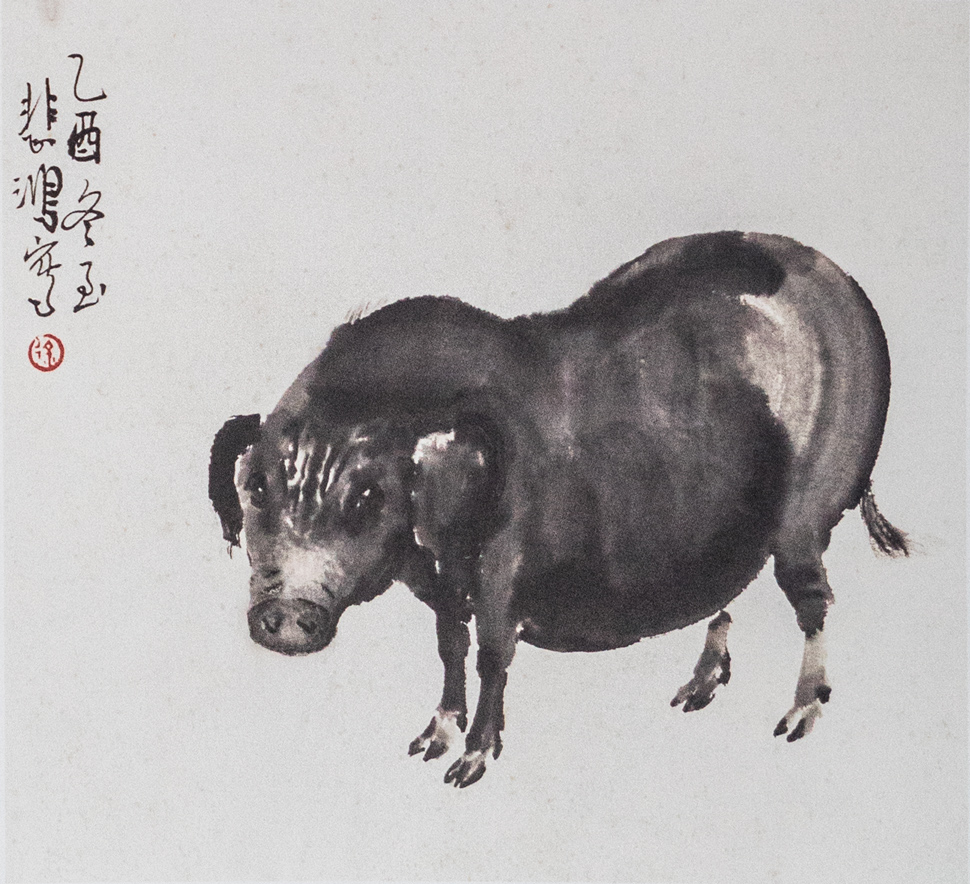 乙酉冬至
悲鴻寫
徐